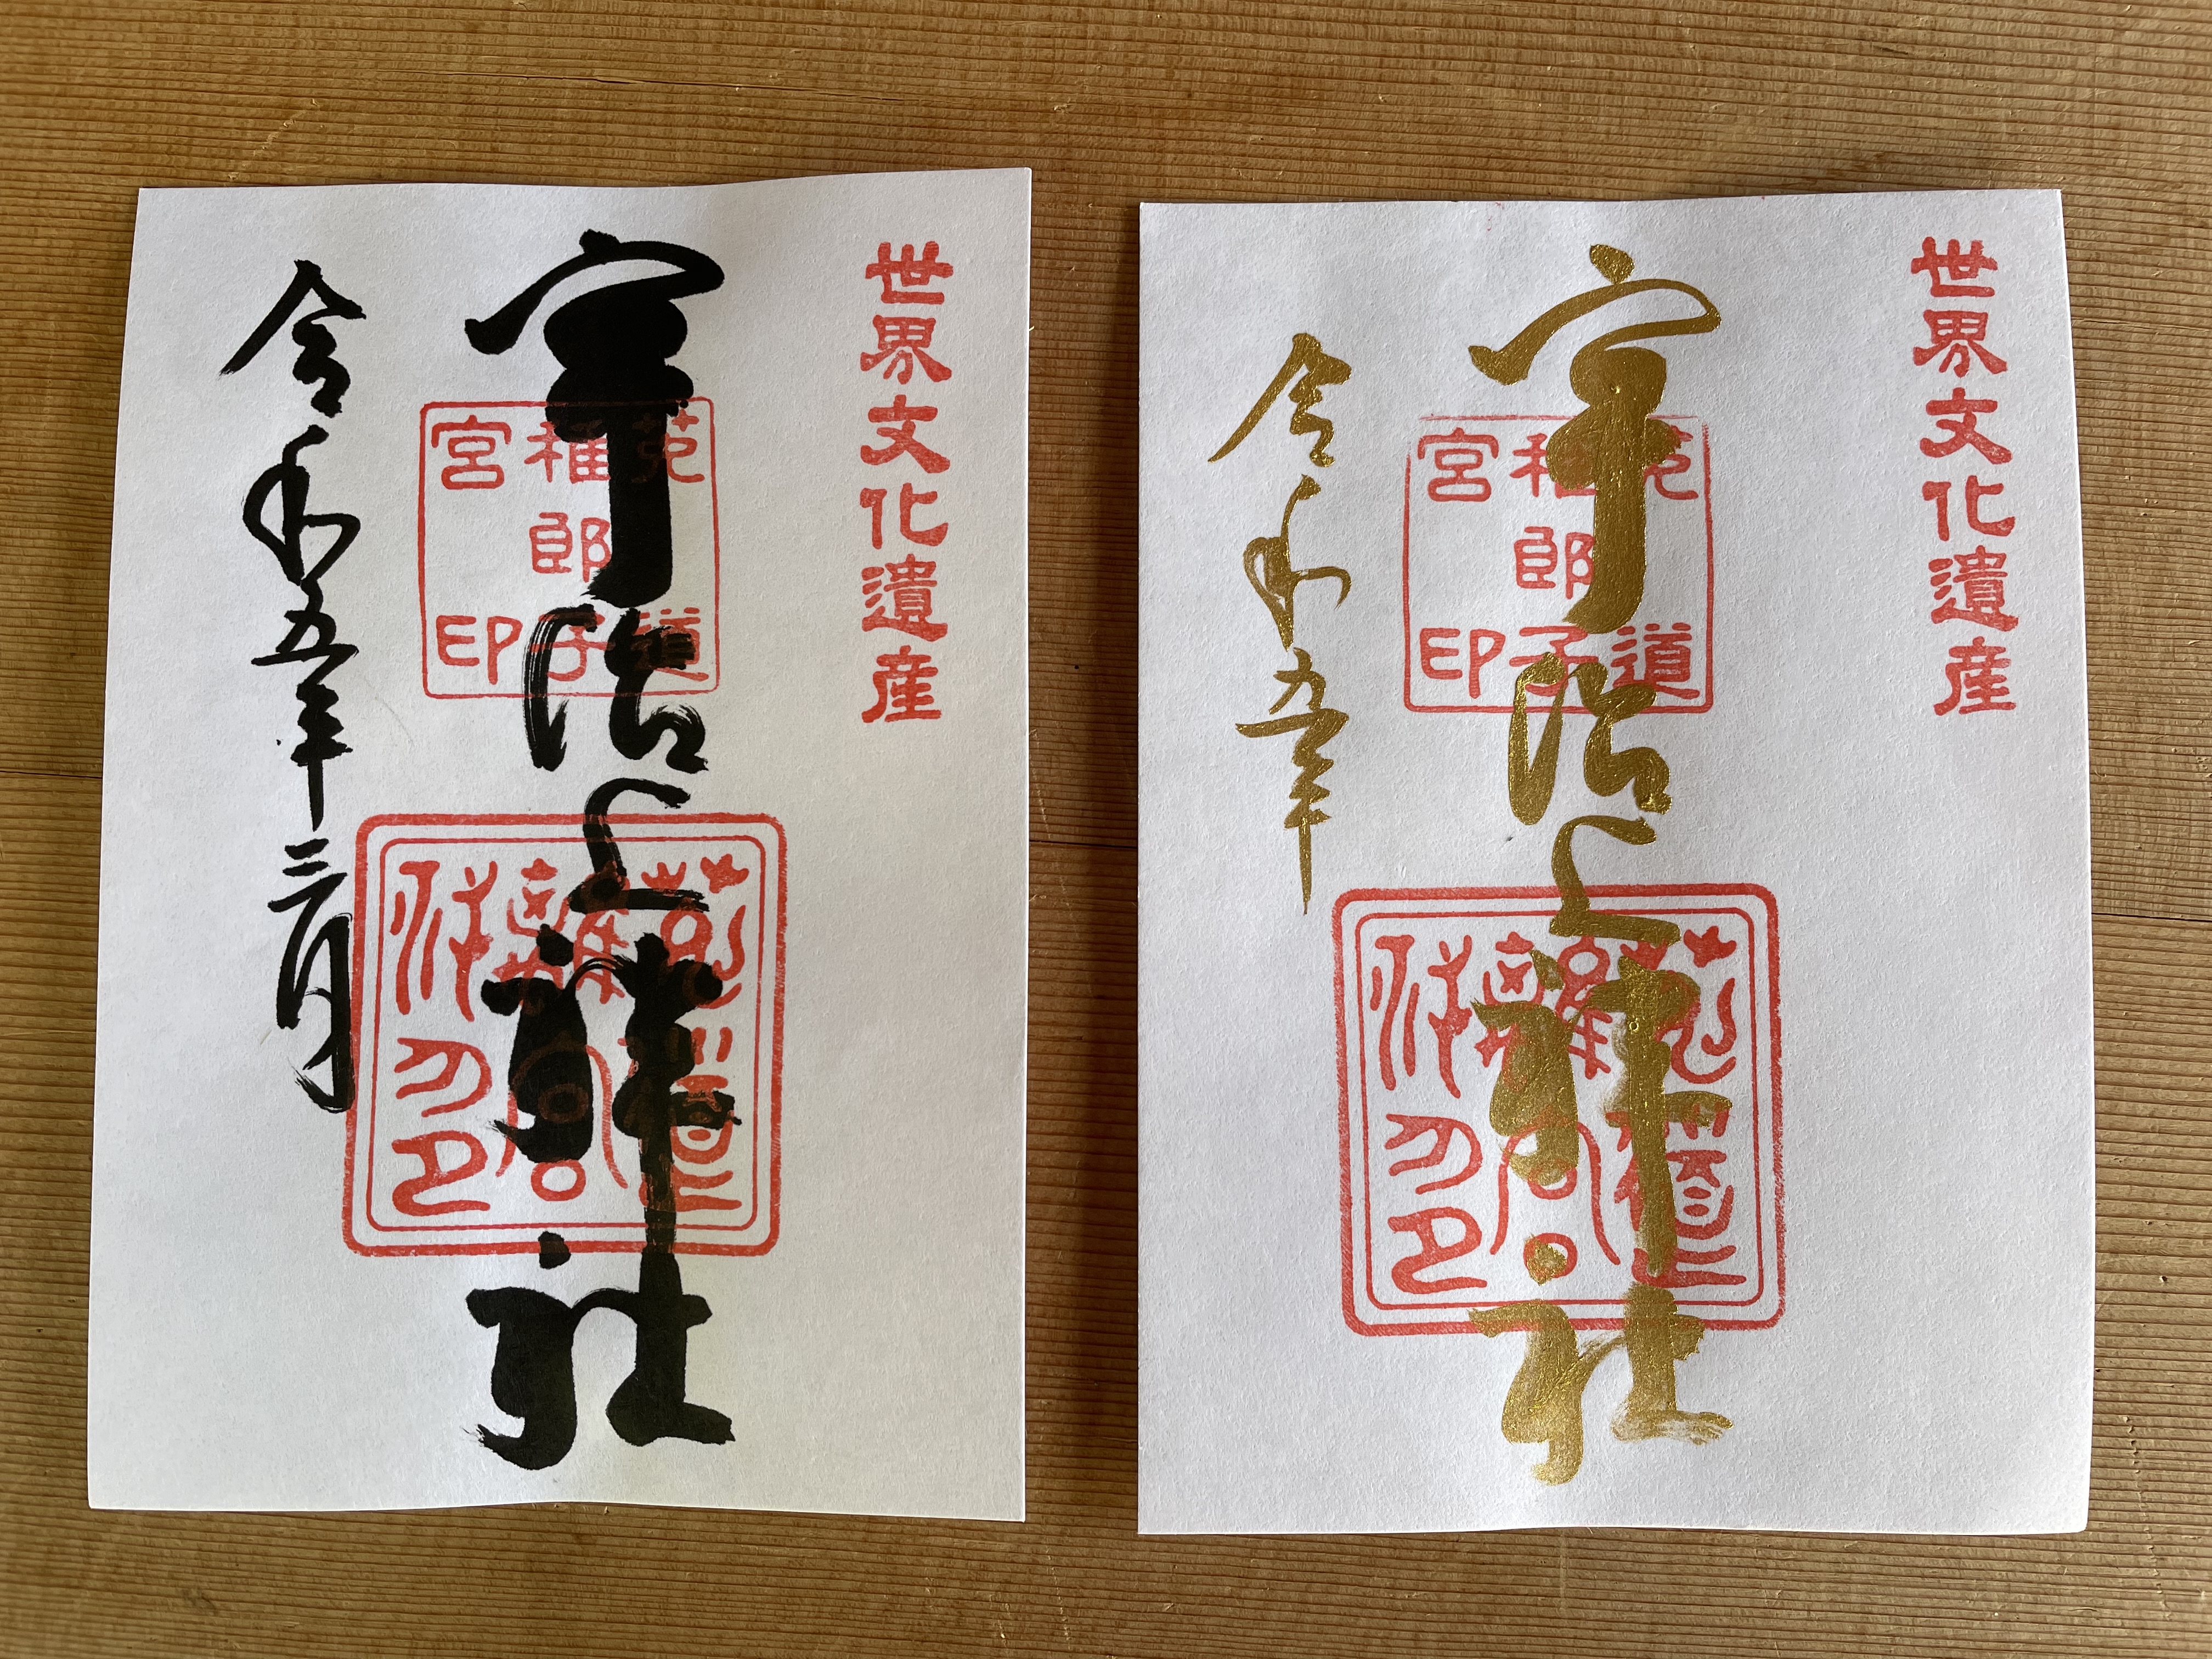 世界文化遺産
宇治上神社
菟道
稚郎子
宮印
令和五年三月
世界文化遺産
宇治上神社
菟道
稚郎子
宮印
令和五年